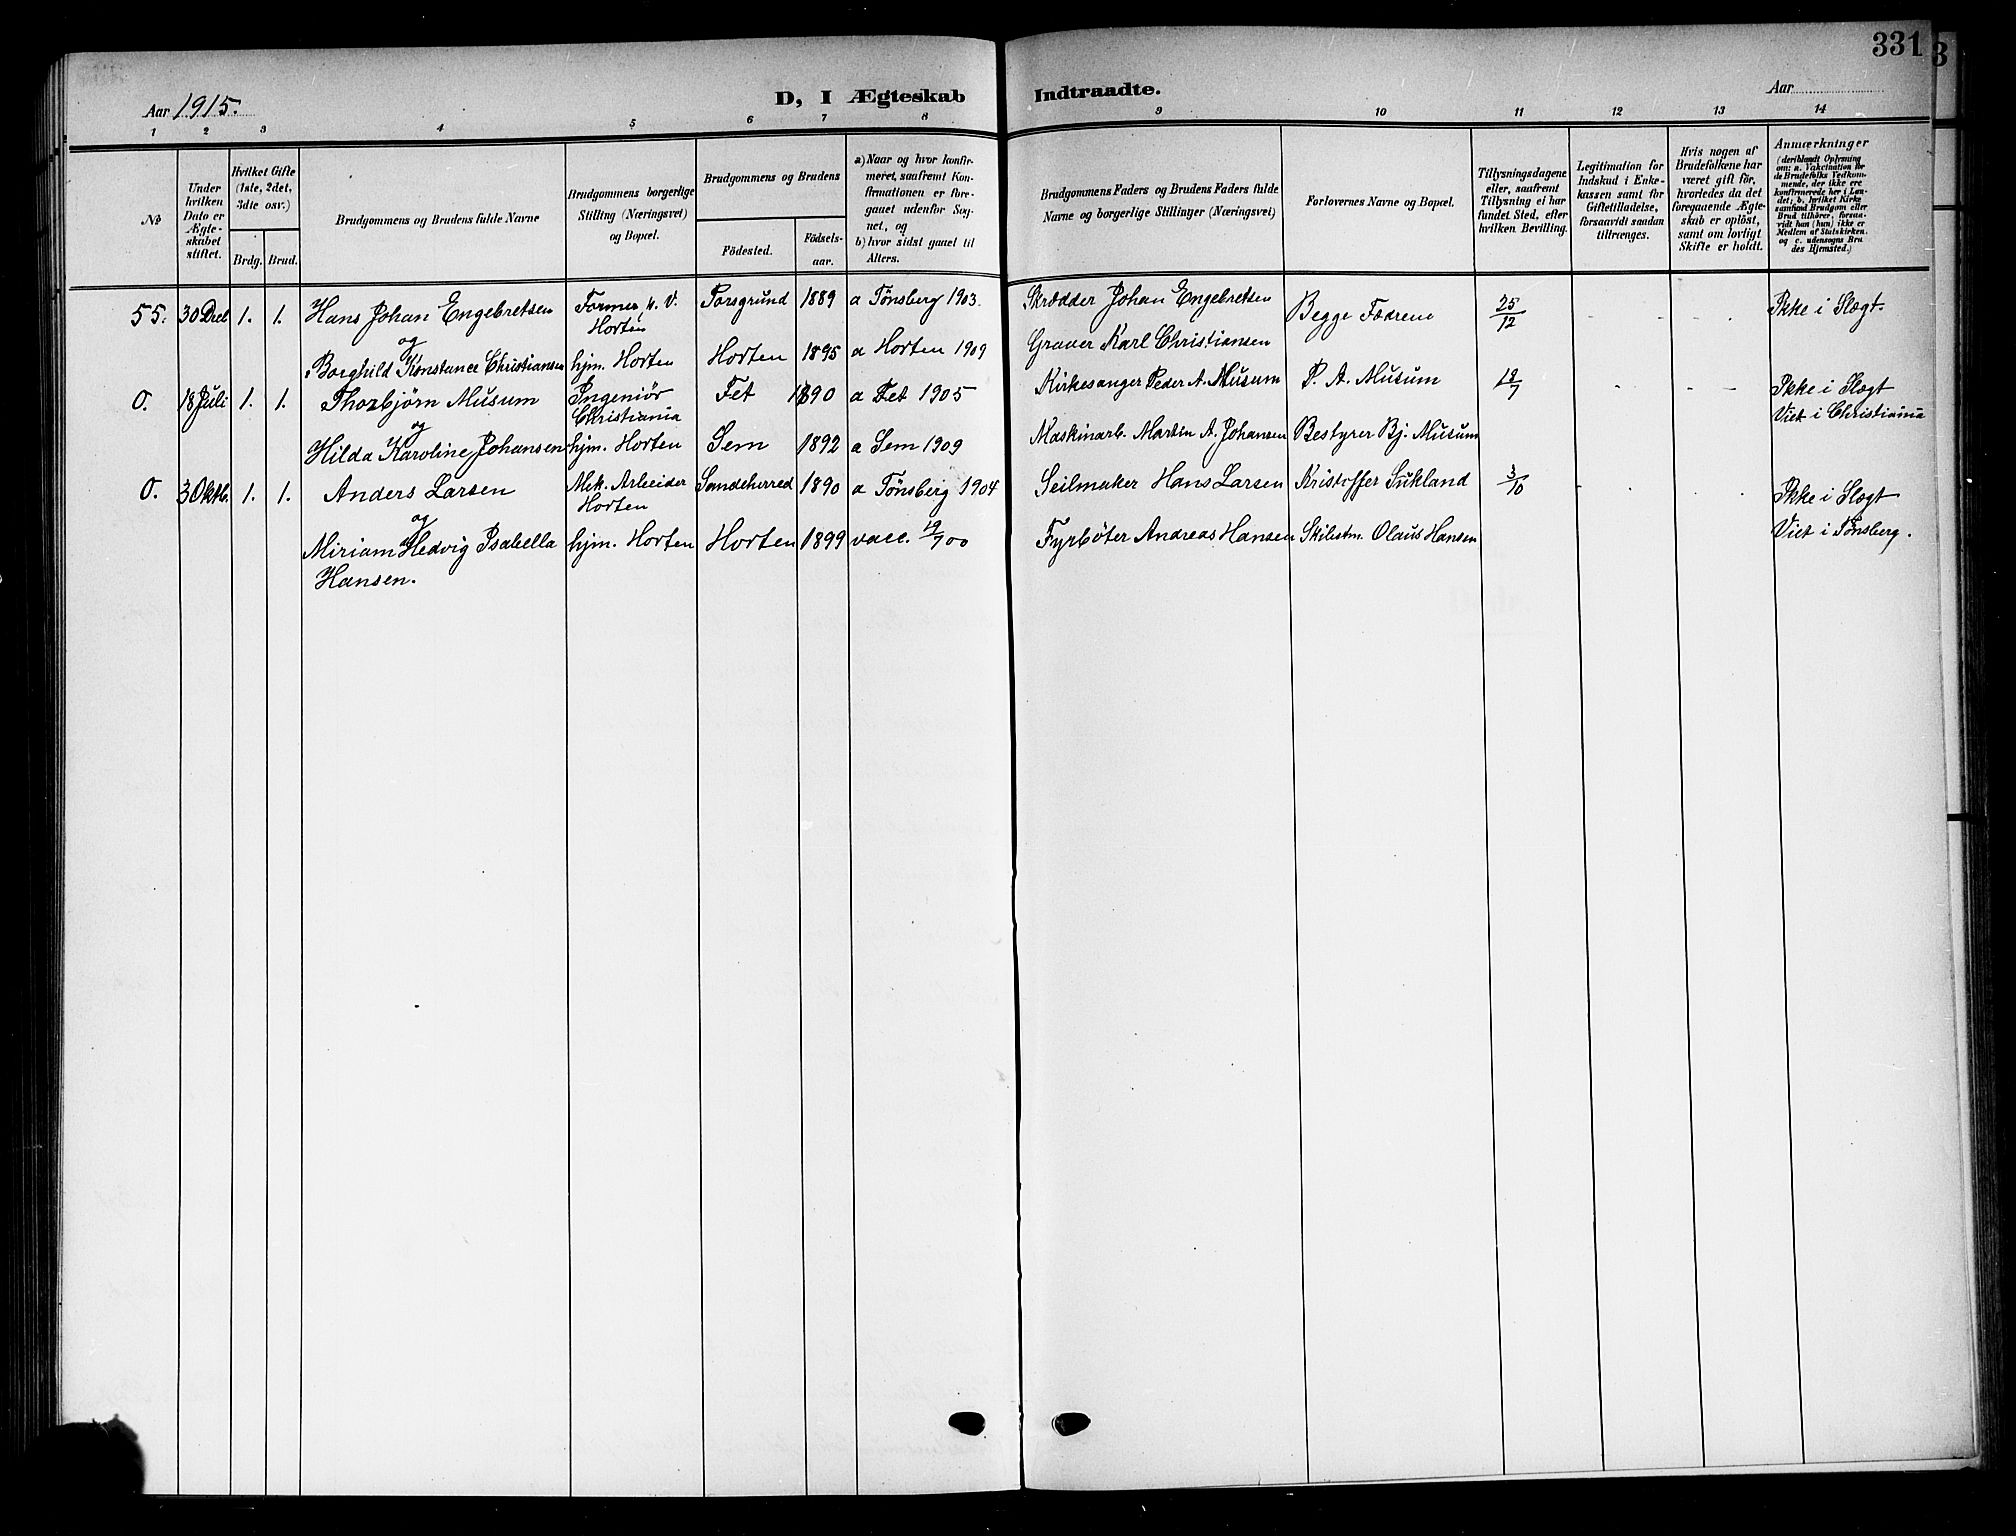 331
Aar 1915.
D, I Ægteskab Indtraadte.
Aar
1 2 3 4 5 6 7 8 9 10 11 12 13 14
No
Under hvilken Dato er Ægteskabet stiftet.
Hvilket Gifte (1ste, 2det, 3dte osv.)
Brdg. Brud.
Brudgommens og Brudens fulde Navne
Brudgommens borgerlige Stilling (Næringsvei) og Bopæl.
Brudgommens og Brudens
Födested.
Födselsaar.
a) Naar og hvor konfirmeret, saafremt Konfirmationen er foregaaet udenfor Sognet, og
b) hvor sidst gaaet til Alters.
Brudgommens Faders og Brudens Faders fulde Navne og borgerlige Stillinger (Næringsvei)
Forlovernes Navne og Bopæl.
Tillysningsdagene eller, saafremt Tillysning ei har fundet Sted, efter hvilken Bevilling.
Legitimation for Indskud i Enkekassen samt for Giftetilladelse, forsaavidt saadan tiltrænges.
Hvis nogen af Brudefolkene har været gift för, hvorledes da det foregaaende Ægteskab er oplöst, samt om lovligt Skifte er holdt.
Anmærkninger
(deriblandt Oplysning om: a. Vakcination for de Brudefolks Vedkommende, der ikke ere konfirmerede her i Landet; b. hvilket Kirkesamfund Brudgom eller Brud tilhörer, forsaavidt han (hun) ikke er Medlem af Statskirken, og c. udensogns Brudes Hjemsted.)
55. 30 Dec 1. 1. Hans Johan Engebretsen Former, K. V. Horten Porsgrund 1889 a Tønsberg 1903. Skrædder Johan Engebretsen Begge Fædrene 25/12 - - - Ikke i Slægt.
og
Borghild Konstance Christiansen hjm. Horten Horten 1895 a Horten 1909 Graver Karl Christiansen
0. 18 Juli 1. 1. Thorbjørn Musum Ingeniør Christiania Fet 1890 a Fet 1905 Kirkesanger Peder A. Musum P. A. Musum 18/7 - - - Ikke i Slægt
Viet i Christiania
og
Hilda Karoline Johansen hjm. Horten Sem 1892 a Sem 1909 Maskinarb. Martin A. Johansen Bestyrer Bj. Musum
0. 3 Oktb. 1. 1. Anders Larsen Mek. Arbeider Horten Sandeherred 1890 a Tønsberg 1904 Seilmaker Hans Larsen Kristoffer Sukland 3/10 - - - Ikke i Slægt
og
Miriam Hedvig Isabella hjm. Horten Horten 1899 vacc. 19/7 00 Fyrbøter Andreas Hansen Skibstm. Olaus Hansen Viet i Tønsberg.
Hansen.